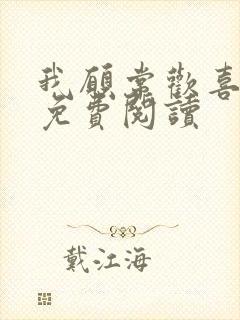 我願常歡喜
免費閱讀
戴江海